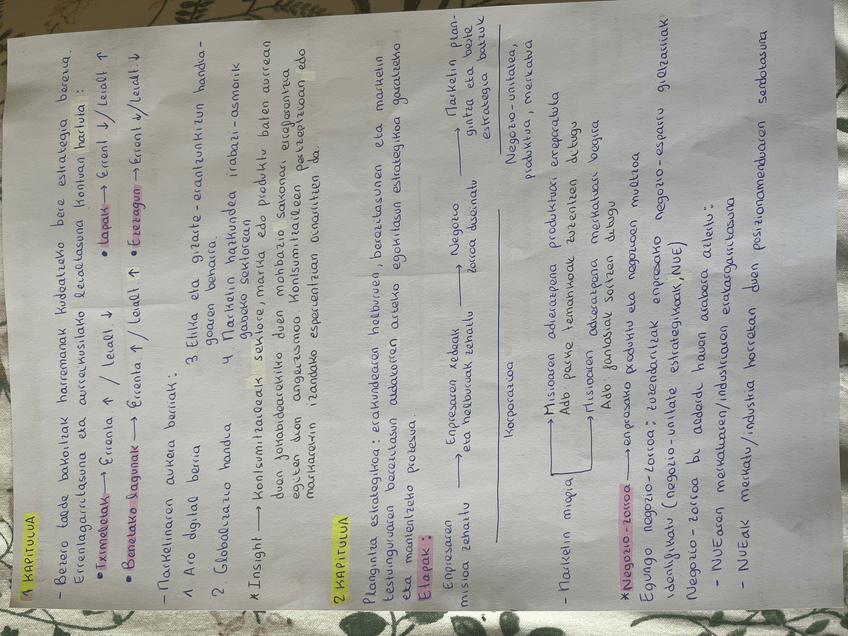 1 KAPITULUA
- Bezero talde bakoitzak harremanak kudeatzeko bere estrategia berezia.
Errentagarritasuna eta aurreikusitako leialtasuna kontuan hartuta:
• Tximeletak → Errenta ↑ / Leialt ↓ • Lapak → Errent ↓ / Leialt ↑
• Benetako lagunak → Errenta ↑ / Leialt ↑ • Ezezagun → Errent ↓ / Leialt ↓
- Marketinaren aukera berriak:
1 Aro digital berria
2. Globalizazio handia
3 Etika eta gizarte-erantzunkizun handia-
goaren beharra.
4 Marketin hazkundea irabazi-asmorik
gabeko sektorean
* Insight → Kontsumitzaileak sektore, marka edo produktu baten aurrean
duen jokabidearekiko duen motibazio sakonari erreferentzia
egiten dion angezismoa. Kontsumitzaileen pertzepzioan edo
markarekin izandako esperientzian oinarritzen da.
2 KAPITULUA
Plangintza estrategikoa: erakundearen helburuen, berezitasunen eta marketin
testuinguruaren berezitasun aldakorren arteko egokitasun estrategikoa garatzeko
eta mantentzeko prozesua.
Etapak:
Enpresaren
misioa zehaztu → Enpresaren xedeak
eta helburuak zehaztu → Negozio
zorroa diseinatu → Marketin plan-
gintza eta beste
estrategia batzuk
Korporazioa
Negozio-unitatea,
produktua, merkatua
- Marketin miopia → Misioaren adierazpena produktuari erreparatuta
Adb parke tematikoak zuzentzen ditugu
→ Misioaren adierazpena merkatuari begira
Adb fantasiak sortzen ditugu
* Negozio-zorroa → enpresako produktu eta negozioen multzoa
Egungo negozio-zorroa: zuzendaritzak enpresako negozio-esparru giltzarriak
identifikatu (negozio-unitate estrategikoak, NUE)
Negozio-zorroa bi alderdi hauen arabera aztertu:
- NUEaren merkatuaren/industriaren erakargarritasuna
- NUEak merkatu/industria horretan duen posizionamenduaren sendotasuna